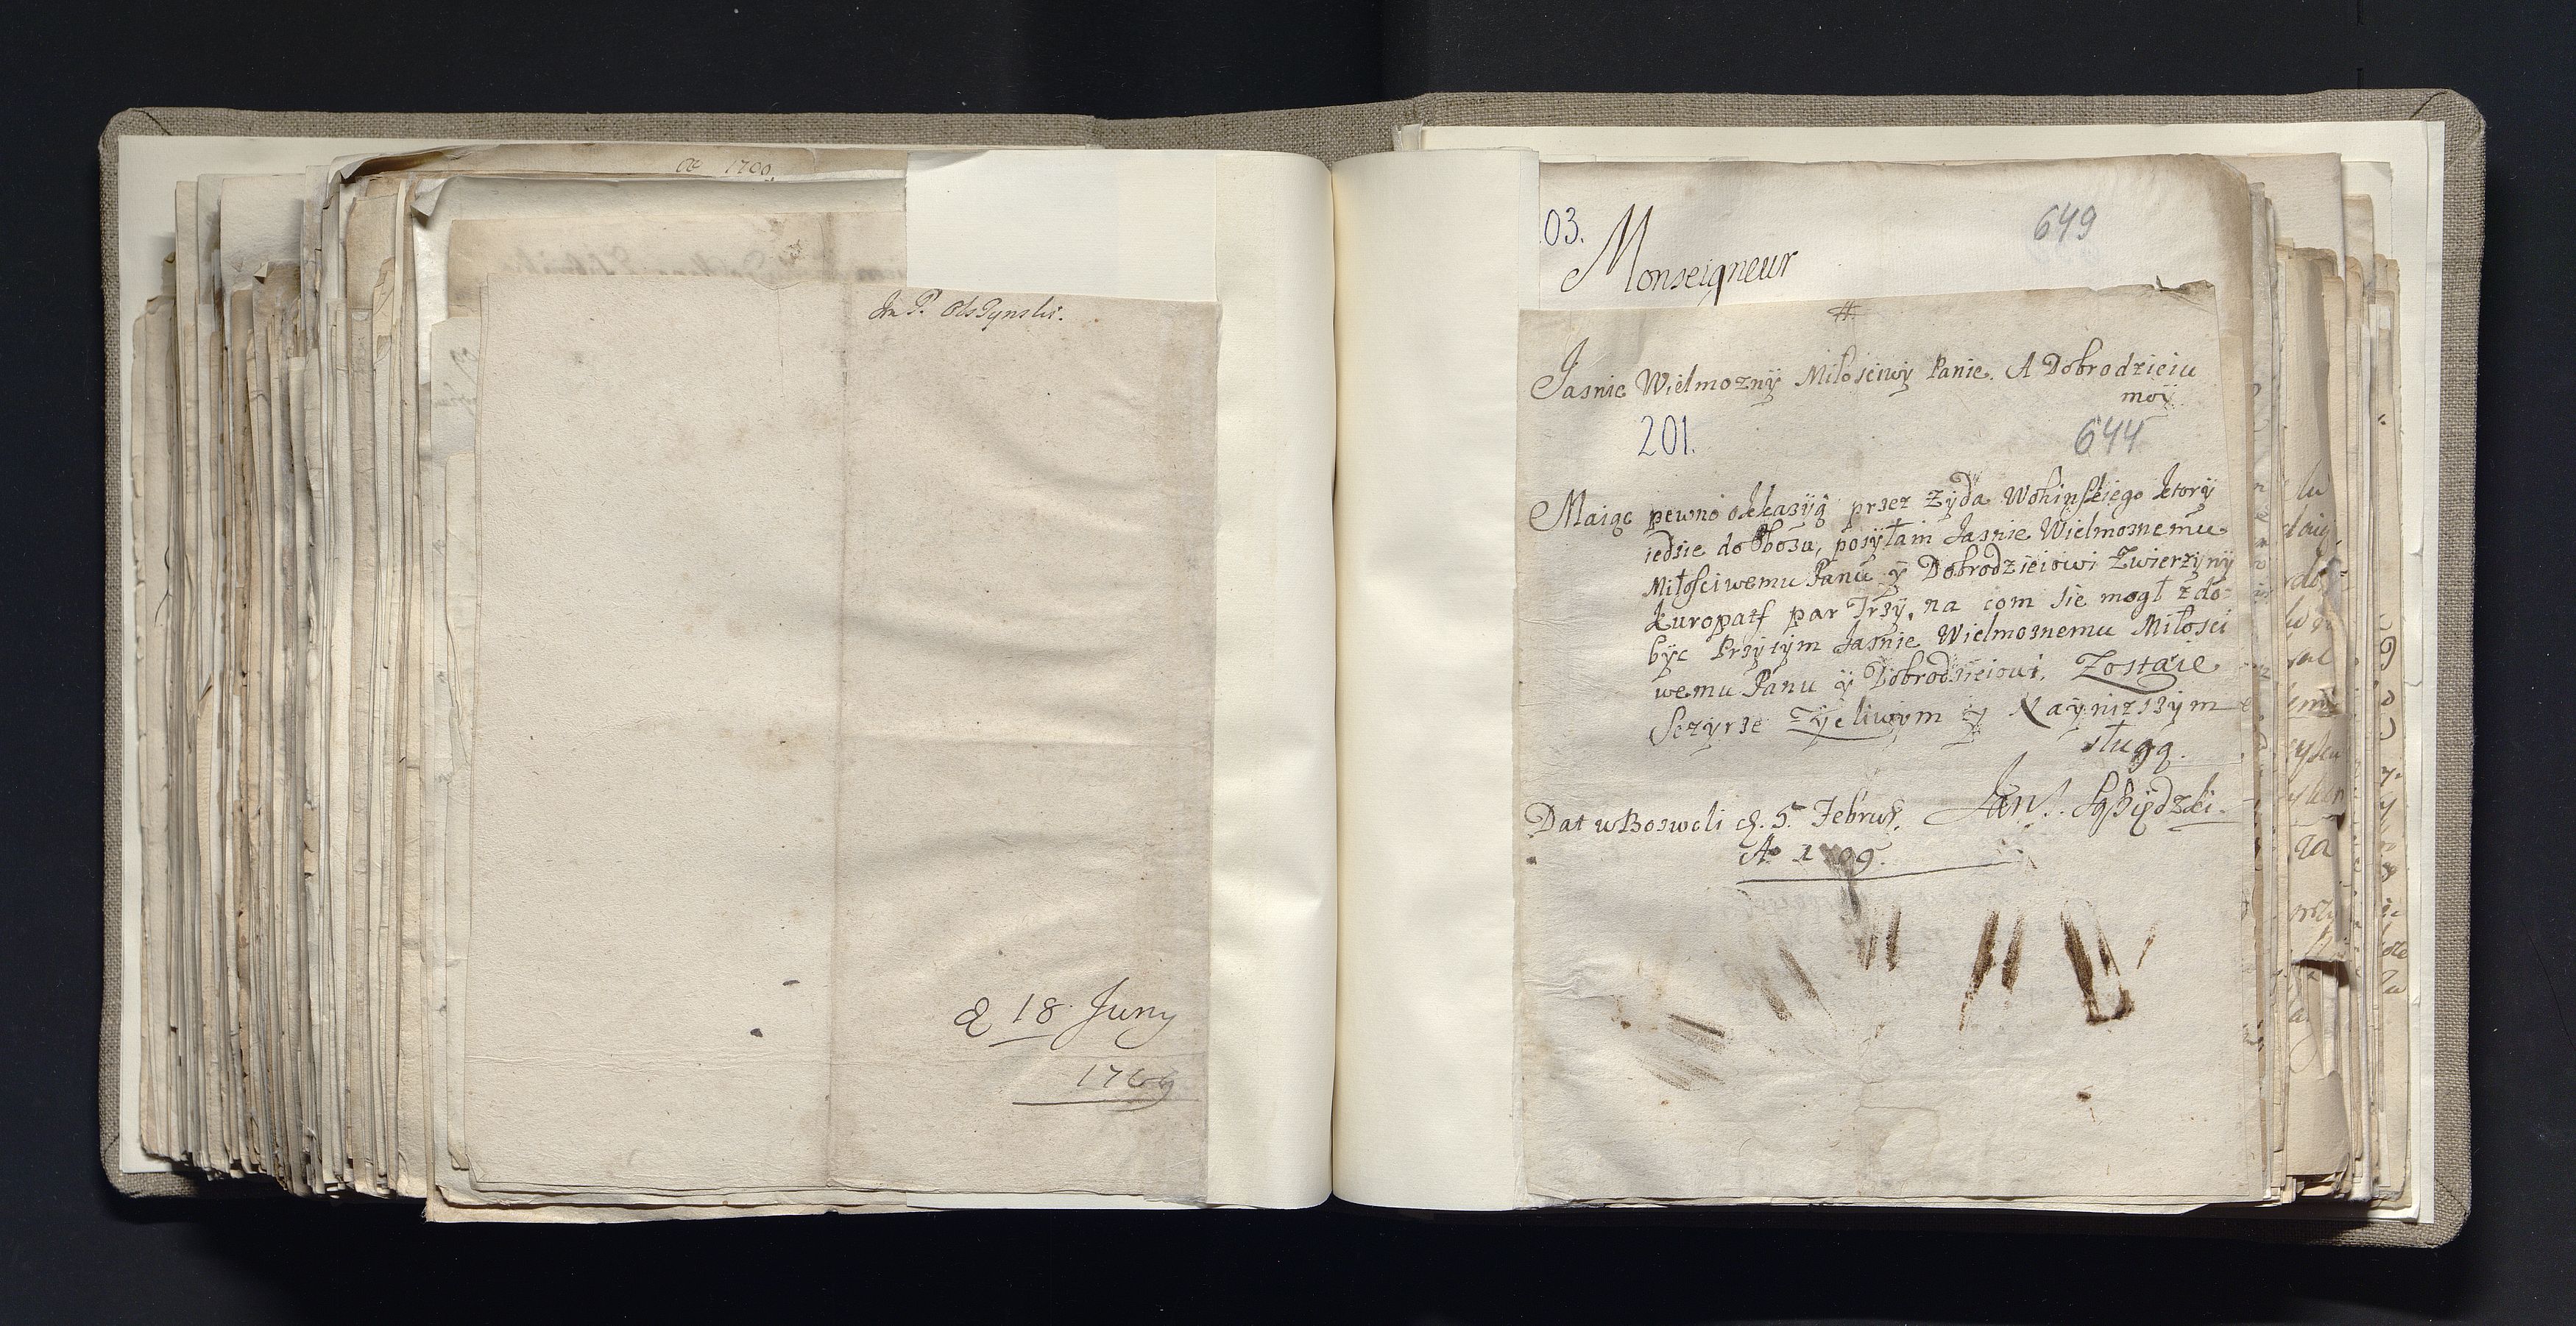 1700.
Jm P. Olszynski.
d 18 Juny
1709
03.
649
Monseigneur
#
Jasnie Wielmoznÿ Miłosciwÿ Panie. A Dobrodzieiu
moÿ
201.
644
Maiąc pewno okkazÿą przez Zÿda Wohinskiego ktorÿ
iedzie do Obozu, posÿłam Jasnie Wielmoznemu
Miłosciwemu Panu ÿ Dobrodzieiowi Zwierzÿnÿ
kuropatf par Trzÿ, na com sie mogł zdo:
bÿc Przÿtÿm Jasnie Wielmoznemu Miłosci
wemu Panu ÿ Dobrodzieiowi, Zostaie
Sczÿrze Zÿcliwÿm ÿ Naÿnizszÿm
sługą.
Dat w Boswoli d. 5. Februar. Jan
Aᵒ 1709.